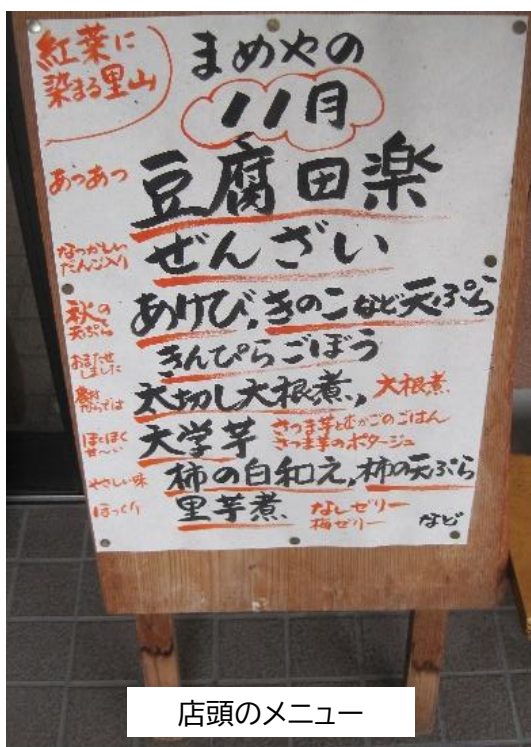 紅葉に
染まる里山
まめやの
11月
あつあつ 豆腐田楽
なつかしい
だんご入り ぜんざい
秋の
天ぷら あけび,きのこなど天ぷら
おまたせ
しました きんぴらごぼう
農村
ならでは 太切し大根煮,大根煮
ほくほく
甘〜い 大学芋 さつま芋とむかごのごはん
さつま芋のポタージュ
やさしい味 柿の白和え,柿の天ぷら
ほっくり 里芋煮 なしゼリー
梅ゼリー など
店頭のメニュー